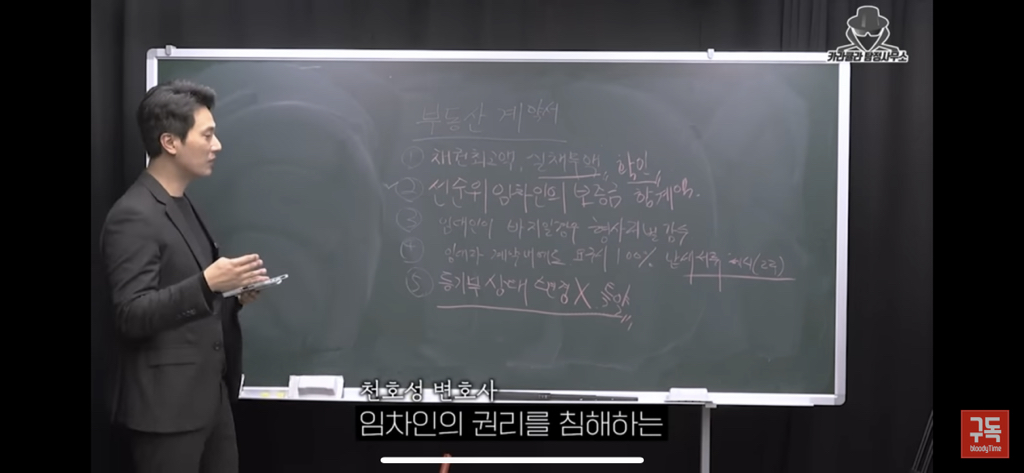 카라큘라 탐정사무소
부동산 계약서
① 채권최고액, 실채무액 확인
② 선순위 임차인의 보증금 합계액.
③ 임대인이 바지일경우 형사처벌 감수
④ 임차인 요구시 100% 서류
⑤ 등기부 상태 변경 X 특약
천호성 변호사
임차인의 권리를 침해하는
구독
bloodyTime